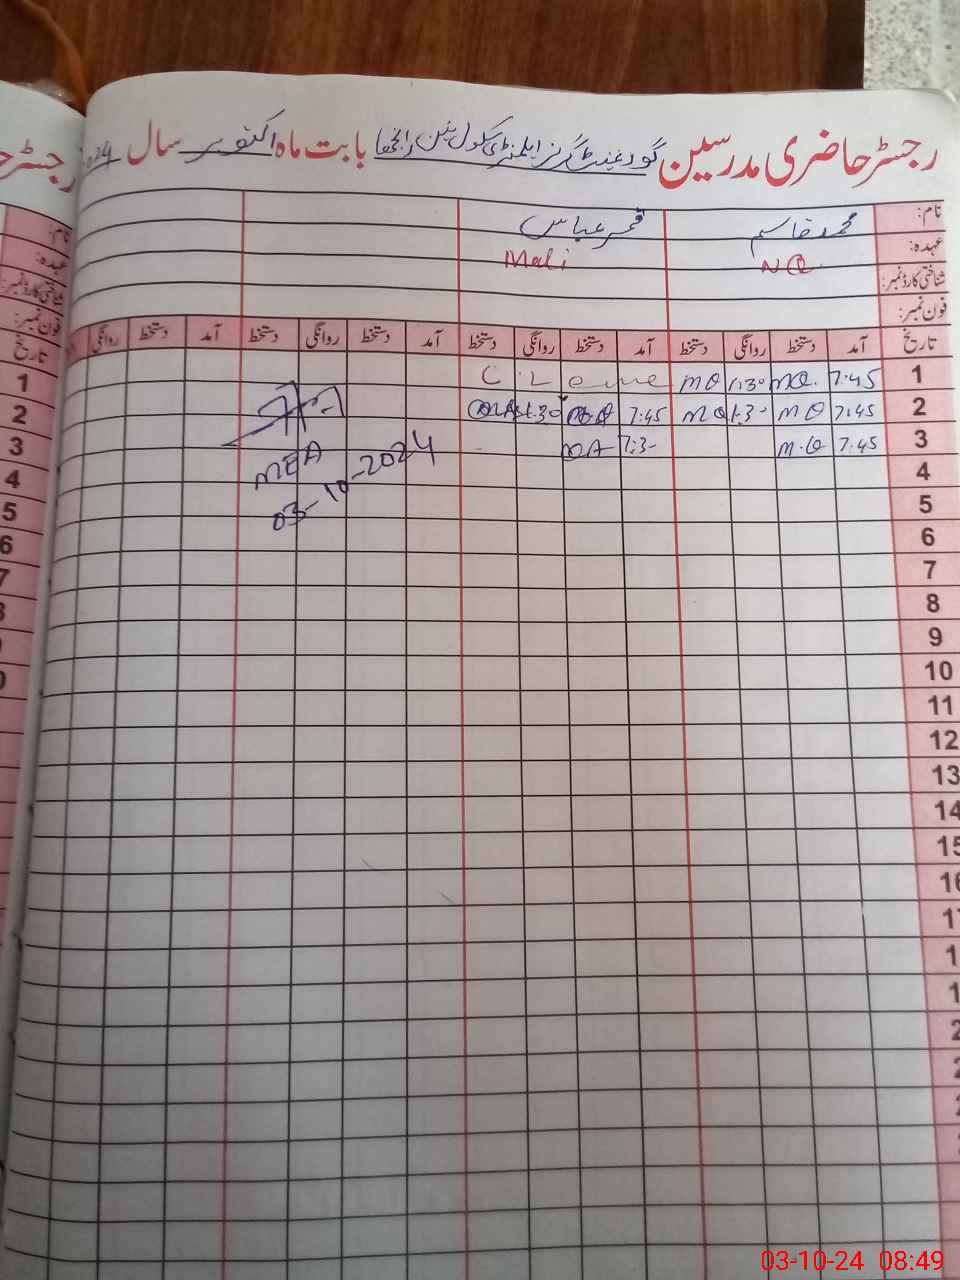 رجسٹر حاضری مدرسین گورنمنٹ گرلز ایلیمنٹری سکول بابت ماہ اکتوبر سال
نام: محمد قاسم قمر عباس
عہدہ: N Q Mali
شناختی کارڈ نمبر:
فون نمبر:
تاریخ آمد دستخط روانگی دستخط آمد دستخط روانگی دستخط آمد دستخط روانگی دستخط آمد دستخط روانگی
1 7:45 M Q. 1:30 M Q C. L
2 7:45 M Q 1:3- M Q 7:45 1:30
3 7:45 M.Q 7:3-
4
5
6
7
8
9
10
11
12
13
14
15
16
MEA
03-10-2024
رجسٹر
نام:
عہدہ:
شناختی کارڈ نمبر:
فون نمبر:
تاریخ
1
2
3
4
5
6
7
03-10-24 08:49